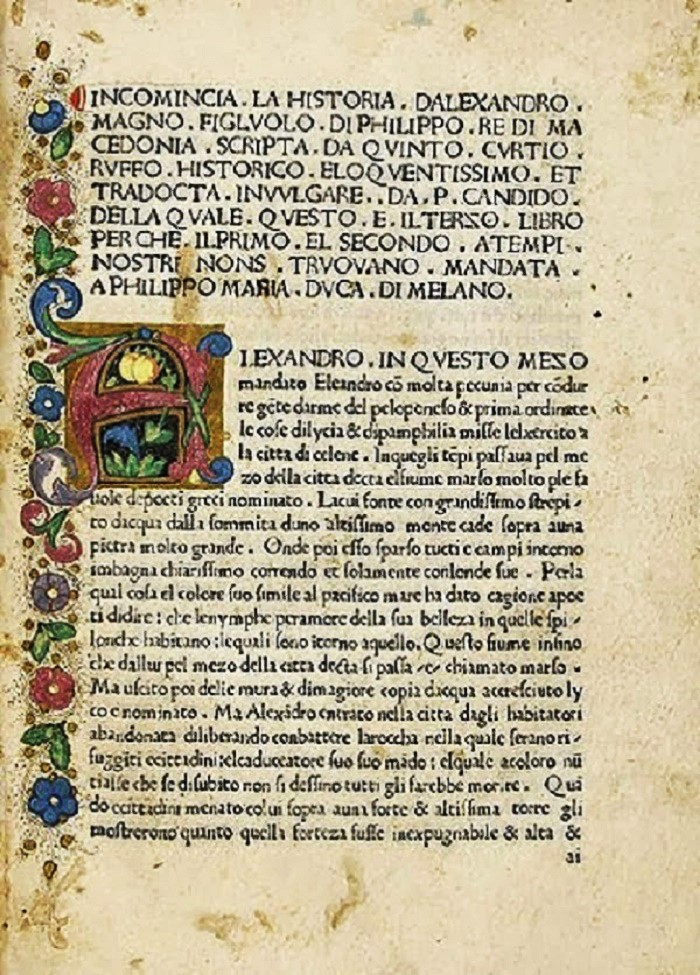 INCOMINCIA . LA HISTORIA . DALEXANDRO .
MAGNO . FIGLVOLO . DI PHILIPPO . RE DI MA
CEDONIA . SCRIPTA . DA QVINTO . CVRTIO .
RVFFO . HISTORICO . ELOQVENTISSIMO . ET
TRADOCTA . INVVLGARE . . DA . P . CANDIDO .
DELLA QVALE . QVESTO . E . ILTERZO . LIBRO
PER CHE . ILPRIMO . EL SECONDO . ATEMPI .
NOSTRI NONS . TRVOVANO . MANDATA .
A PHILIPPO MARIA . DVCA . DI MELANO .
A LEXANDRO . IN QVESTO MEZO
mandato Eleandro cõ molta pecunia per cõdur
re gẽte darme del peloponeso & prima ordinate
le cose dilycia & dipamphilia misse lexercito a
la citta di celene . Inquegli tẽpi passaua pel me
zo della citta decta elfiume marso molto ple fa
uole depoeti greci nominato . Lacui fonte con grandissimo strepi
to dacqua dalla sommita duno altissimo monte cade sopra auna
pietra molto grande . Onde poi esso sparso tucti e campi intorno
imbagna chiarissimo correndo et solamente conlonde sue . Perla
qual cosa el colore suo simile al pacifico mare ha dato cagione apoe
ti didire : che lenymphe peramore della sua belleza in quelle spi
lonche habitano : lequali sono itorno aquello . Questo fiume insino
che dallui pel mezo della citta decta si passa e chiamato marso .
Ma uscito poi delle mura & dimagiore copia dacqua accresciuto ly
co e nominato . Ma Alexãdro entrato nella citta dagli habitatori
abandonata diliberando conbattere laroccha nella quale serano ri
fuggiti ecittadini : elcaduceatore suo suo mãdo : elquale acoloro nũ
tiasse che se disubito non si dessino tutti gli sarebbe morire . Quã
do ecittadini menato colui sopra auna forte & altissima torre gli
mostrerono quanto quella forteza fusse inexpugnabile & alta &
ai